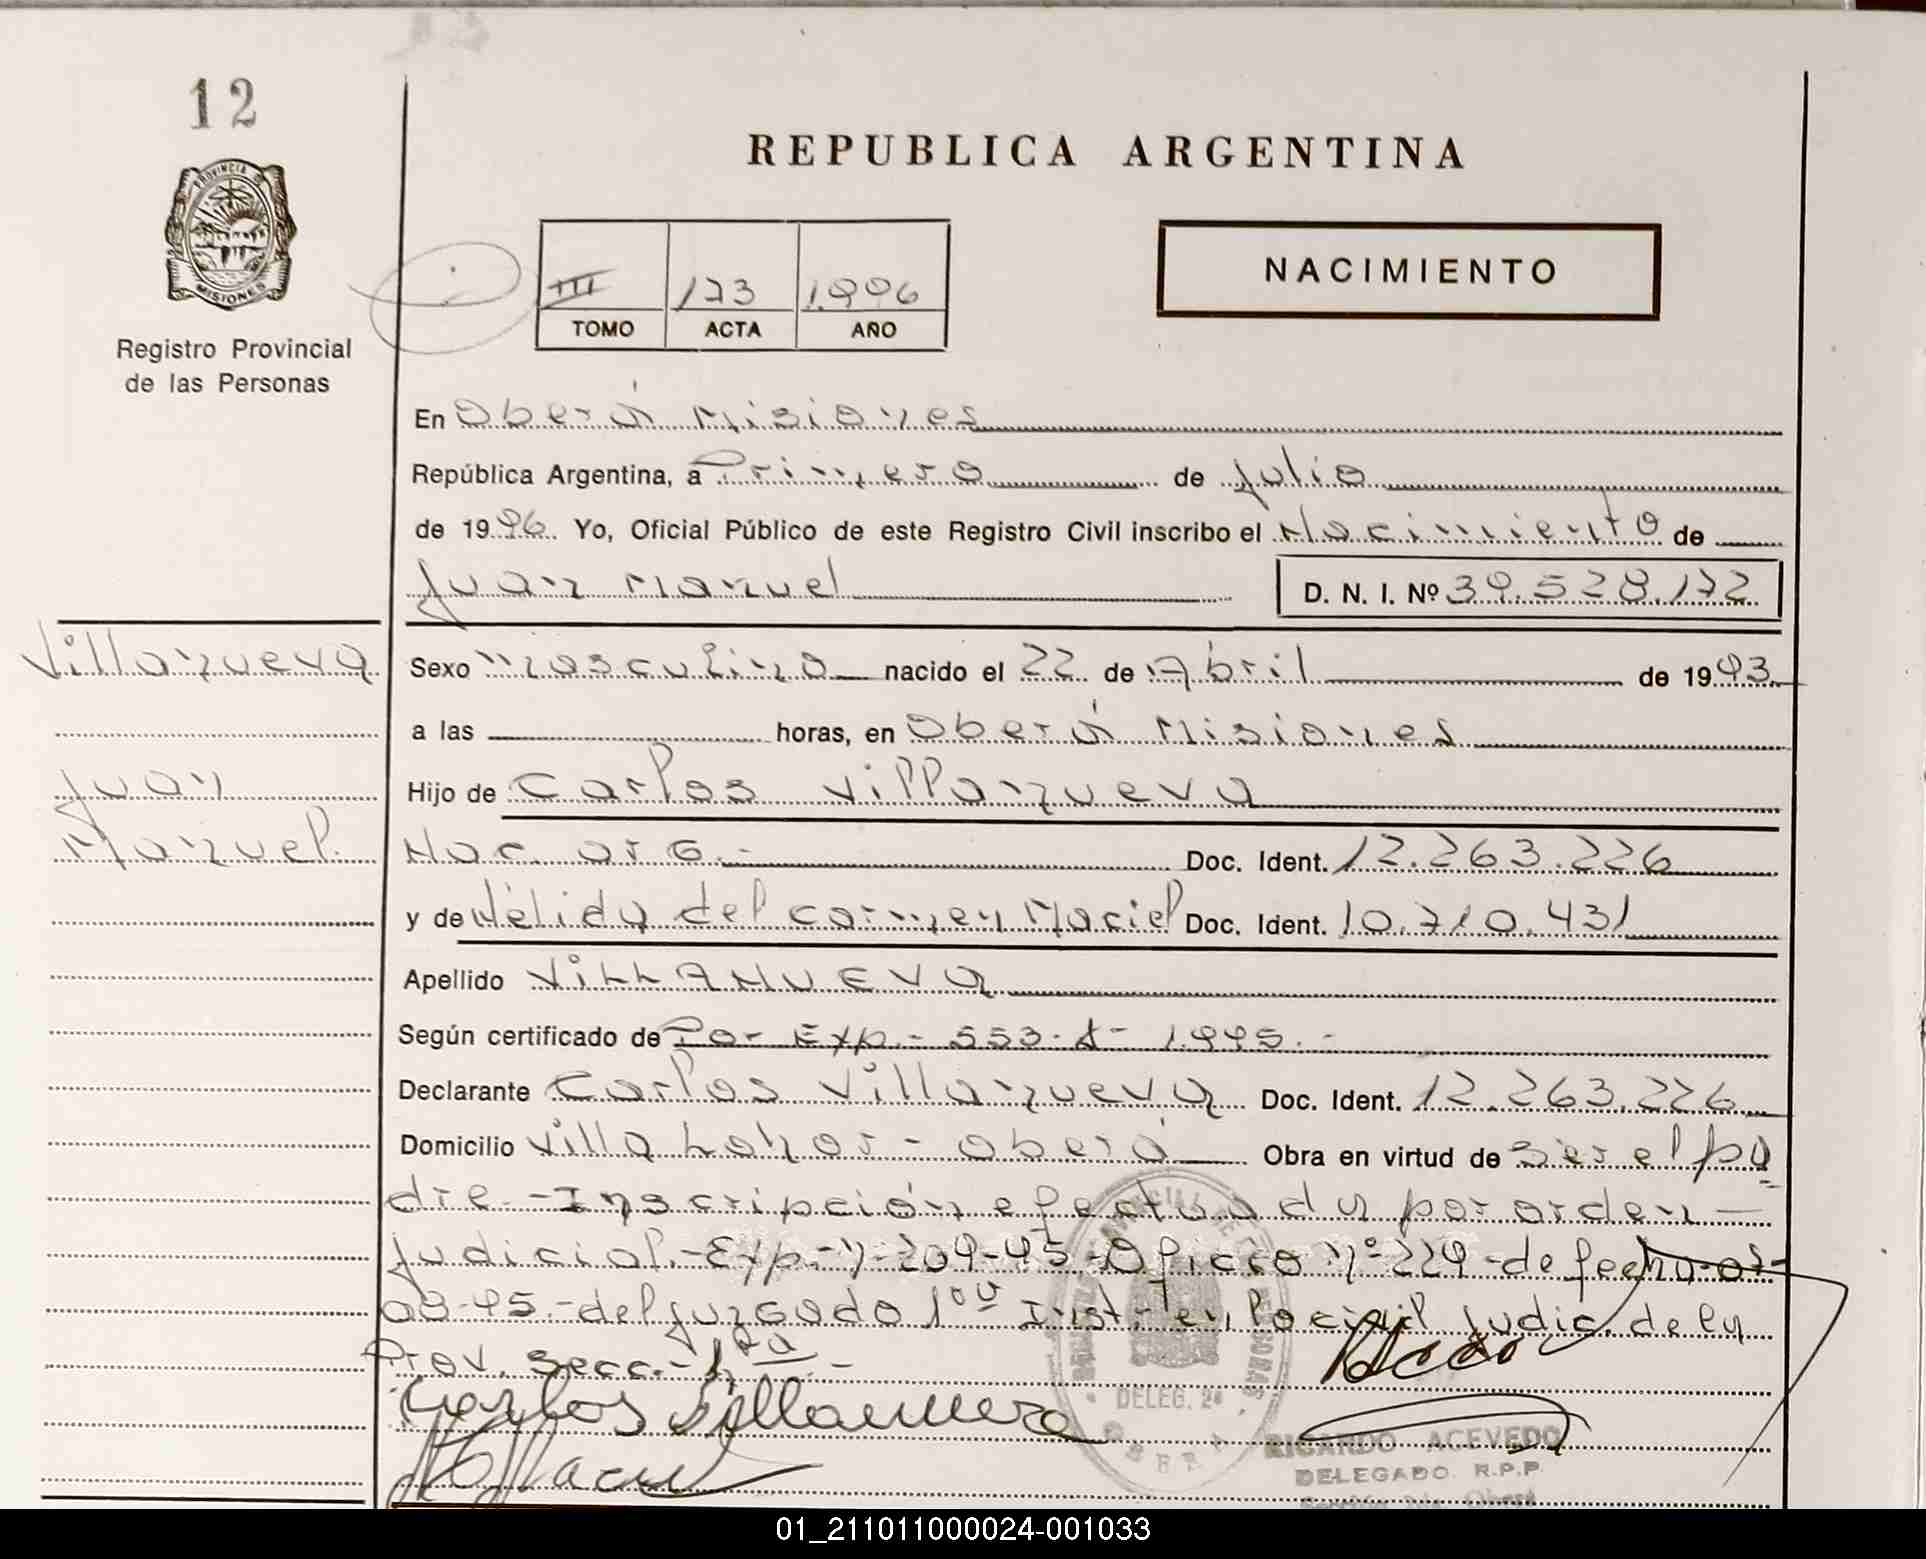 12
REPUBLICA ARGENTINA
PROVINCIA DE
MISIONES
Registro Provincial
de las Personas
III 173 1996
TOMO ACTA AÑO
NACIMIENTO
En Oberá Misiones
República Argentina, a Primero de Julio
de 1996 Yo, Oficial Público de este Registro Civil inscribo el Nacimiento de
Juan Manuel D. N. I. Nº 39.528.172
Villanueva
Juan
Manuel.
Sexo masculino nacido el 22 de Abril de 1993
a las horas, en Oberá Misiones
Hijo de Carlos Villanueva
Nac. arg.- Doc. Ident. 12.263.226
y de Nélida del carmen Maciel Doc. Ident. 10.710.431
Apellido VILLANUEVA
Según certificado de Por Exp.- 553-A- 1.995.-
Declarante Carlos Villanueva Doc. Ident. 12.263.226
Domicilio Villa - oberá Obra en virtud de ser el pa
dre.-Inscripción efectuada por orden-
judicial.-Exp.-Nº 209-95-Oficio Nº 229-de fecha
08-95.-del juzgado 1ra Inst. en lo civil Judic. de la
Prov. Secc.- 1ra.-
Carlos Villanueva
DELEG. 24
OBERA
RICARDO ACEVEDO
DELEGADO R.P.P.
01_211011000024-001033